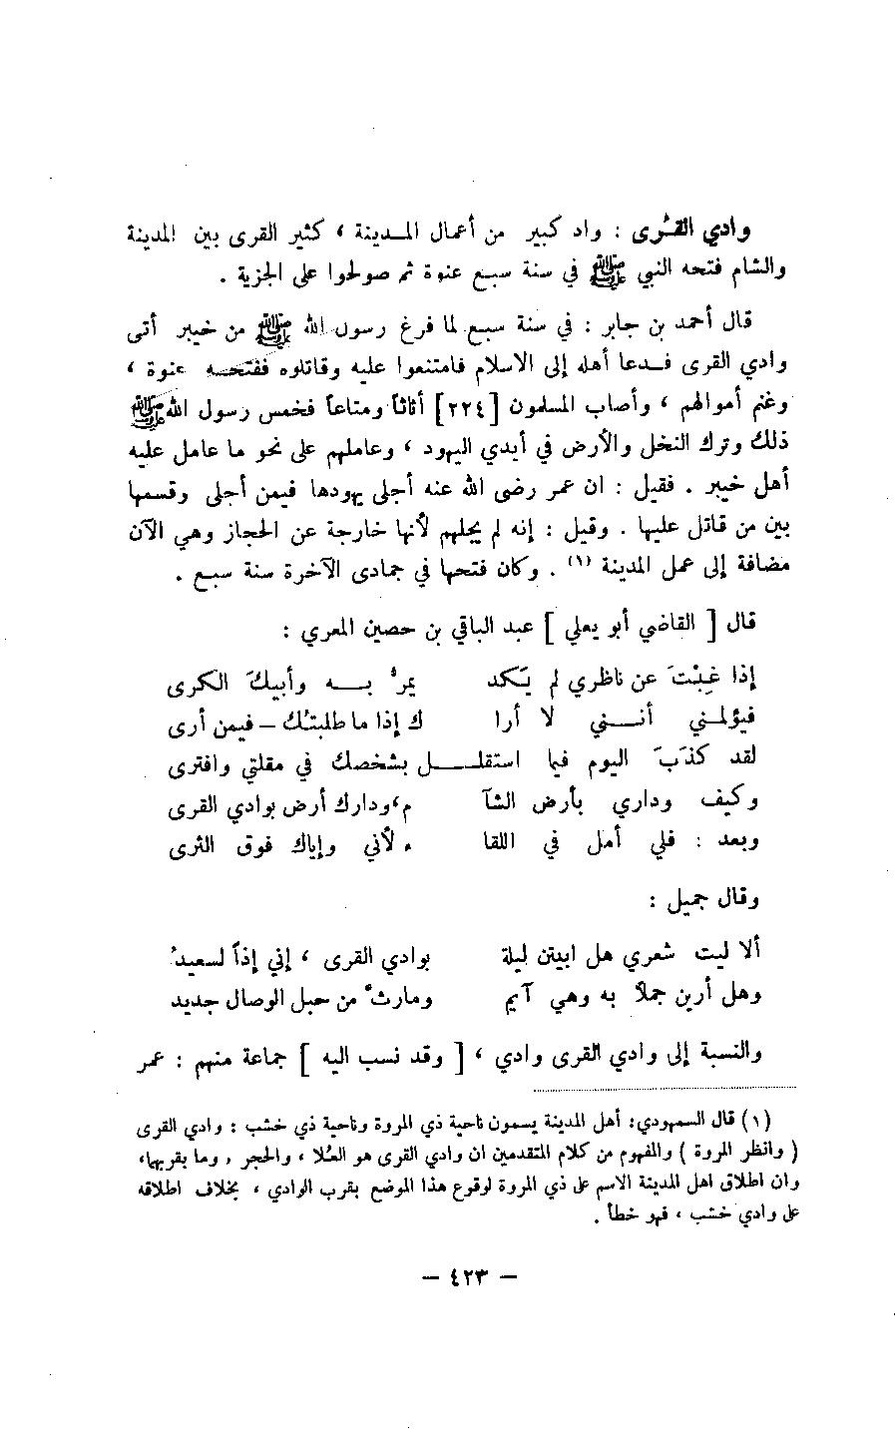 وادي القُرى : واد كبير من أعمال المـدينة ، كثير القرى بين المدينة
والشام فتحه النبي ﷺ في سنة سبع عنوة ثم صولحوا على الجزية .
قال أحمد بن جابر : في سنة سبع لما فرغ رسول الله ﷺ من خيبر أتى
وادي القرى فـدعا أهله إلى الاسلام فامتنعوا عليه وقاتلوه ففتحـه عنوة ،
وغنم أموالهم ، وأصاب المسلمون [٢٢٤] أثاثاً ومتاعاً فخمس رسول الله ﷺ
ذلك وترك النخل والأرض في أيدي اليهود ، وعاملهم على نحو ما عامل عليه
أهل خيبر . فقيل : ان عمر رضى الله عنه أجلى يهودها فيمن أجلى وقسمها
بين من قاتل عليها . وقيل : إنه لم يجلهم لأنها خارجة عن الحجاز وهي الآن
مضافة إلى عمل المدينة (١) . وكان فتحها في جمادى الآخرة سنة سبع .
قال [ القاضي أبو يعلي ] عبد الباقي بن حصين المعري :
إذا غِبْتَ عن ناظري لم يَـكد يمرُّ بـــه وأبيكَ الكرى
فيؤلمـني أنـــني لا أرا ك إذا ما طلبتـُك – فيمن أرى
لقد كذَبَ اليوم فيما استقلـــل بشخصك في مقلتي وافترى
وكيف وداري بأرض الشآ م، ودارك أرض بوادي القرى
وبعد : فلي أمل في اللقا ء لأني وإياك فوق الثرى
وقال جميل :
ألا ليت شعري هل ابيتن ليلة بوادي القرى ، إني إذاً لسعيدُ
وهل أرين جملاً به وهي آيم ومارثّ من حبل الوصال جديد
والنسبة إلى وادي القرى وادي ، [ وقد نسب اليه ] جماعة منهم : عمر
(١) قال السمهودي: أهل المدينة يسمون ناحية ذي المروة وناحية ذي خشب : وادي القرى
( وانظر المروة ) والمفهوم من كلام المتقدمين ان وادي القرى هو العُلا ، والحجر , وما بقربهما،
وان اطلاق اهل المدينة الاسم على ذي المروة لوقوع هذا الموضع بقرب الوادي ، بخلاف اطلاقه
على وادي خشب ، فهو خطأ .
– ٤٢٣ –